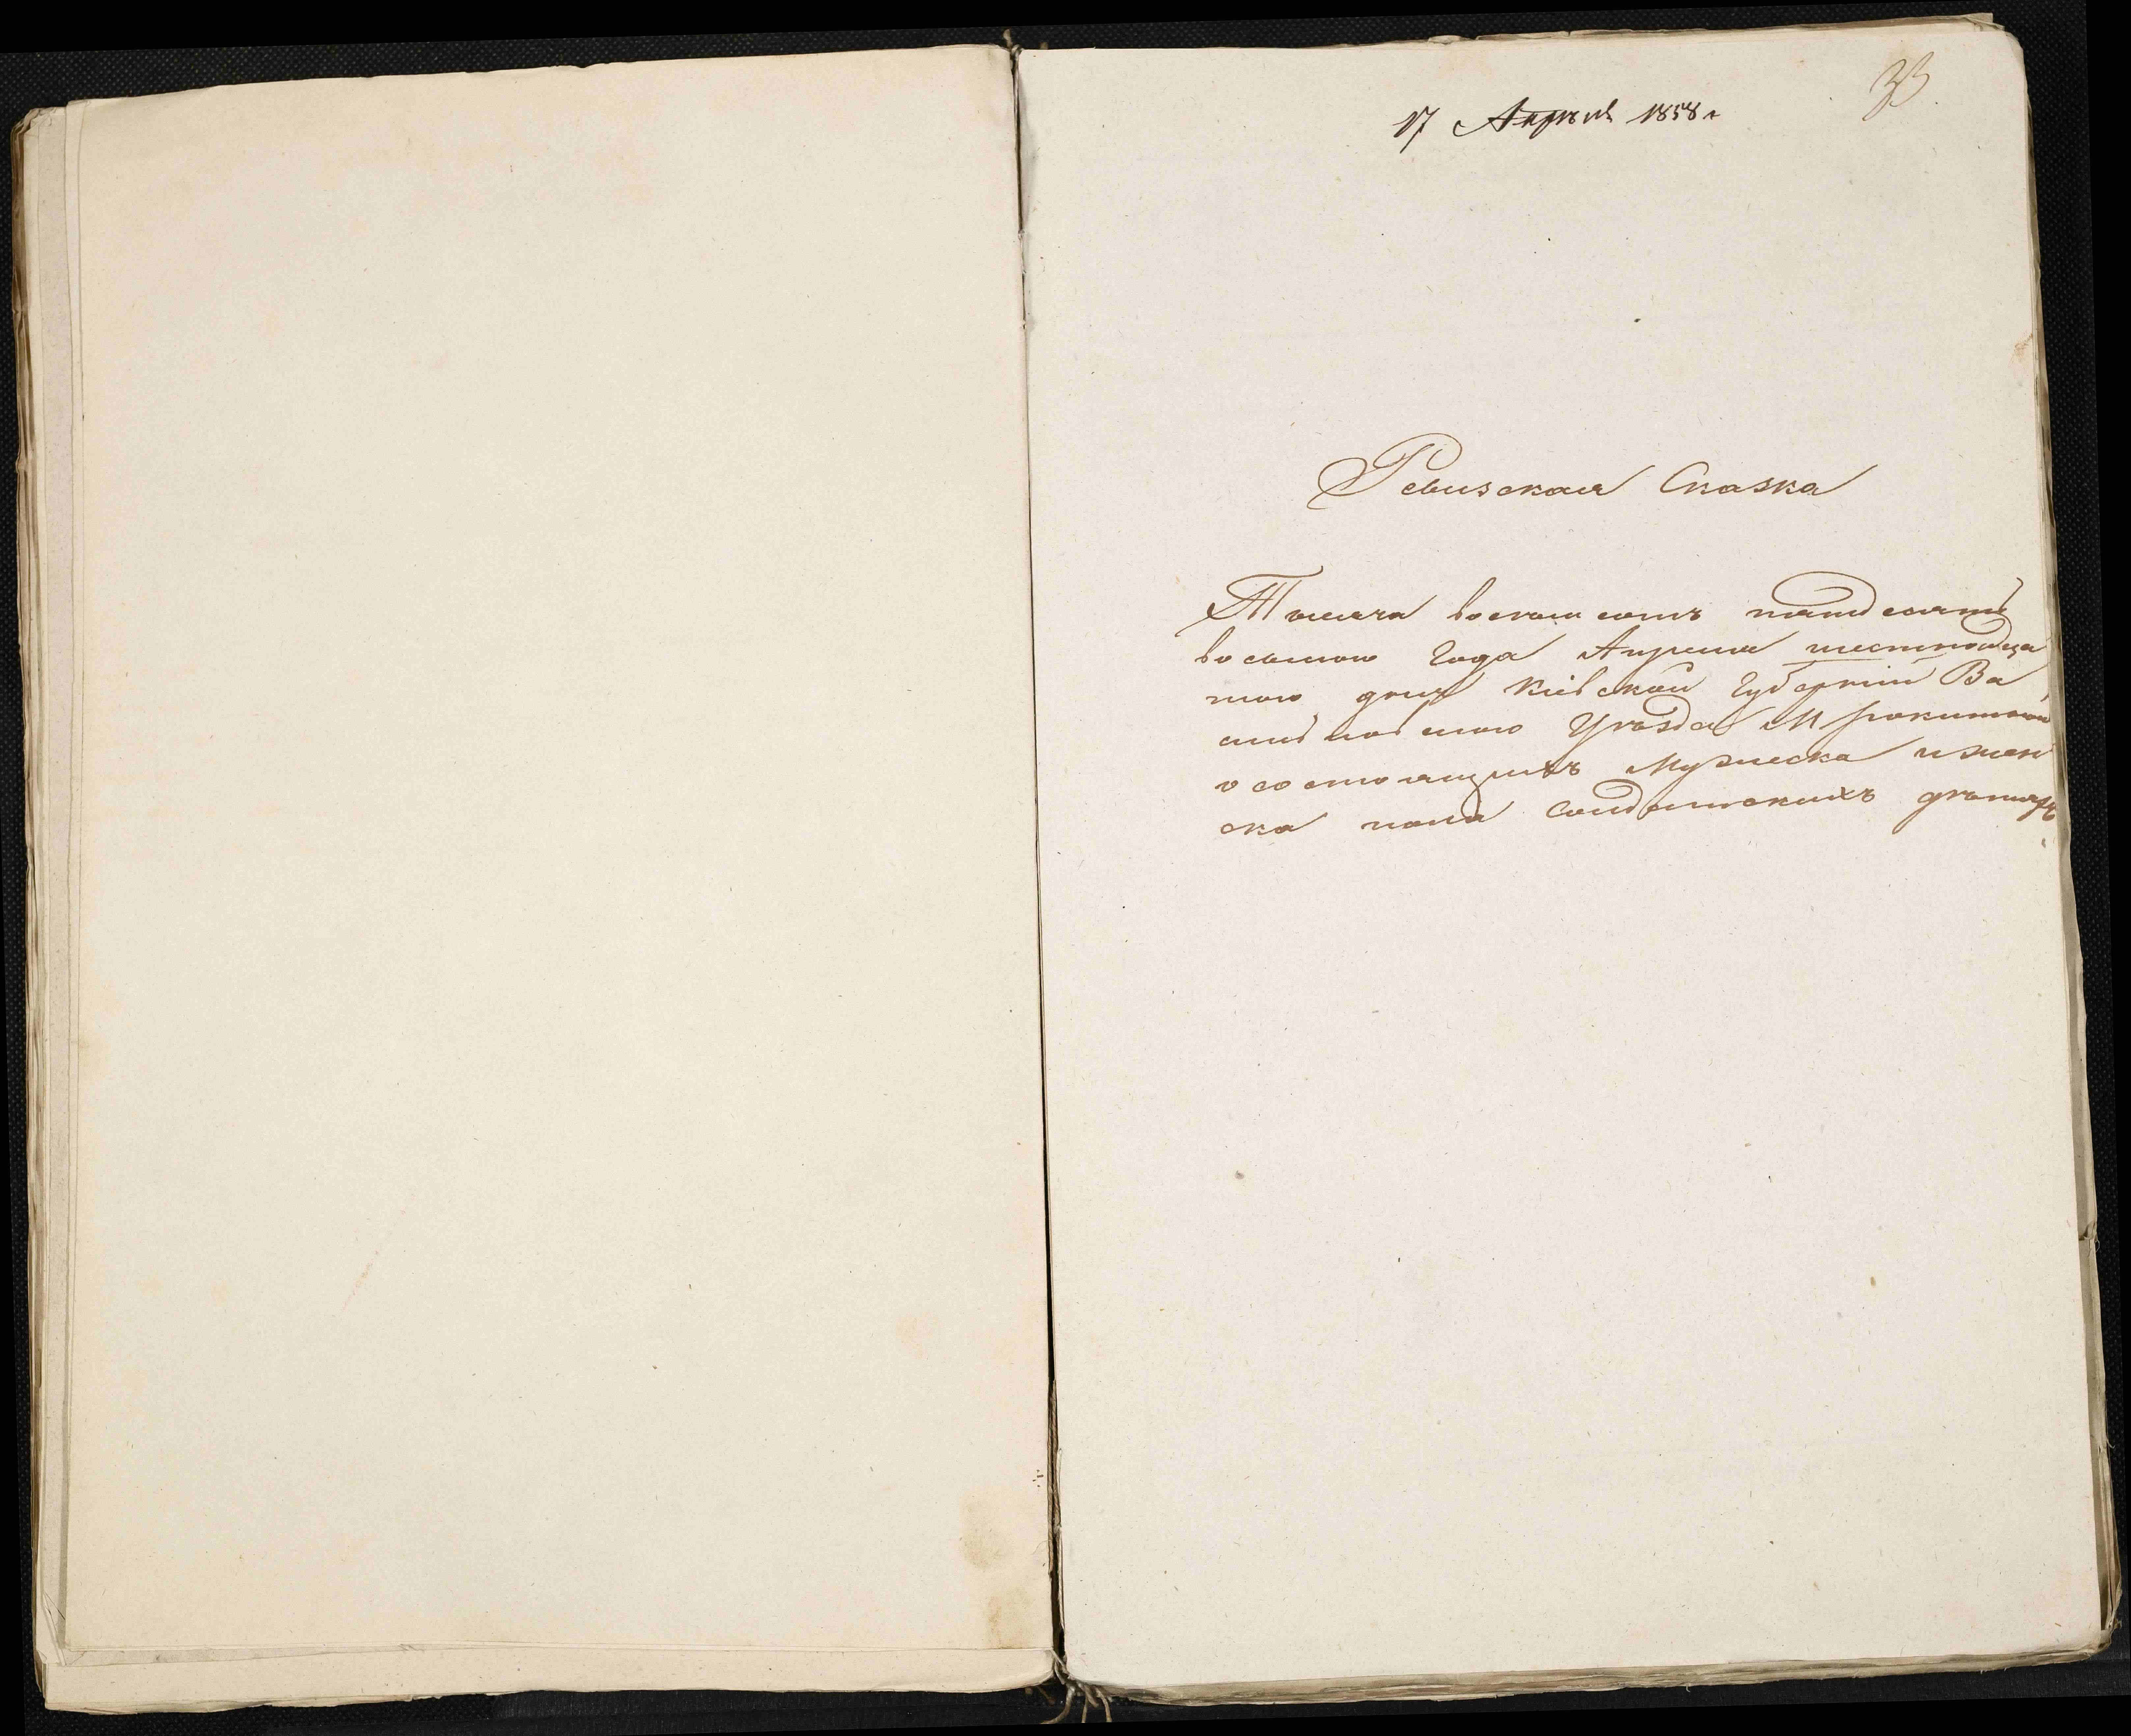 33
17 Апрѣль 1858 г
Ревизская Сказка
Тысяча восемьсотъ пятдесятъ
восьмого Года Апреля шестнодца
того дня Кіевской Губерніи Ва
сильковского Уѣзда М. Рокитной
о состоящихъ Мужеска и жен
ска пола Солдатскихъ дѣтяхъ